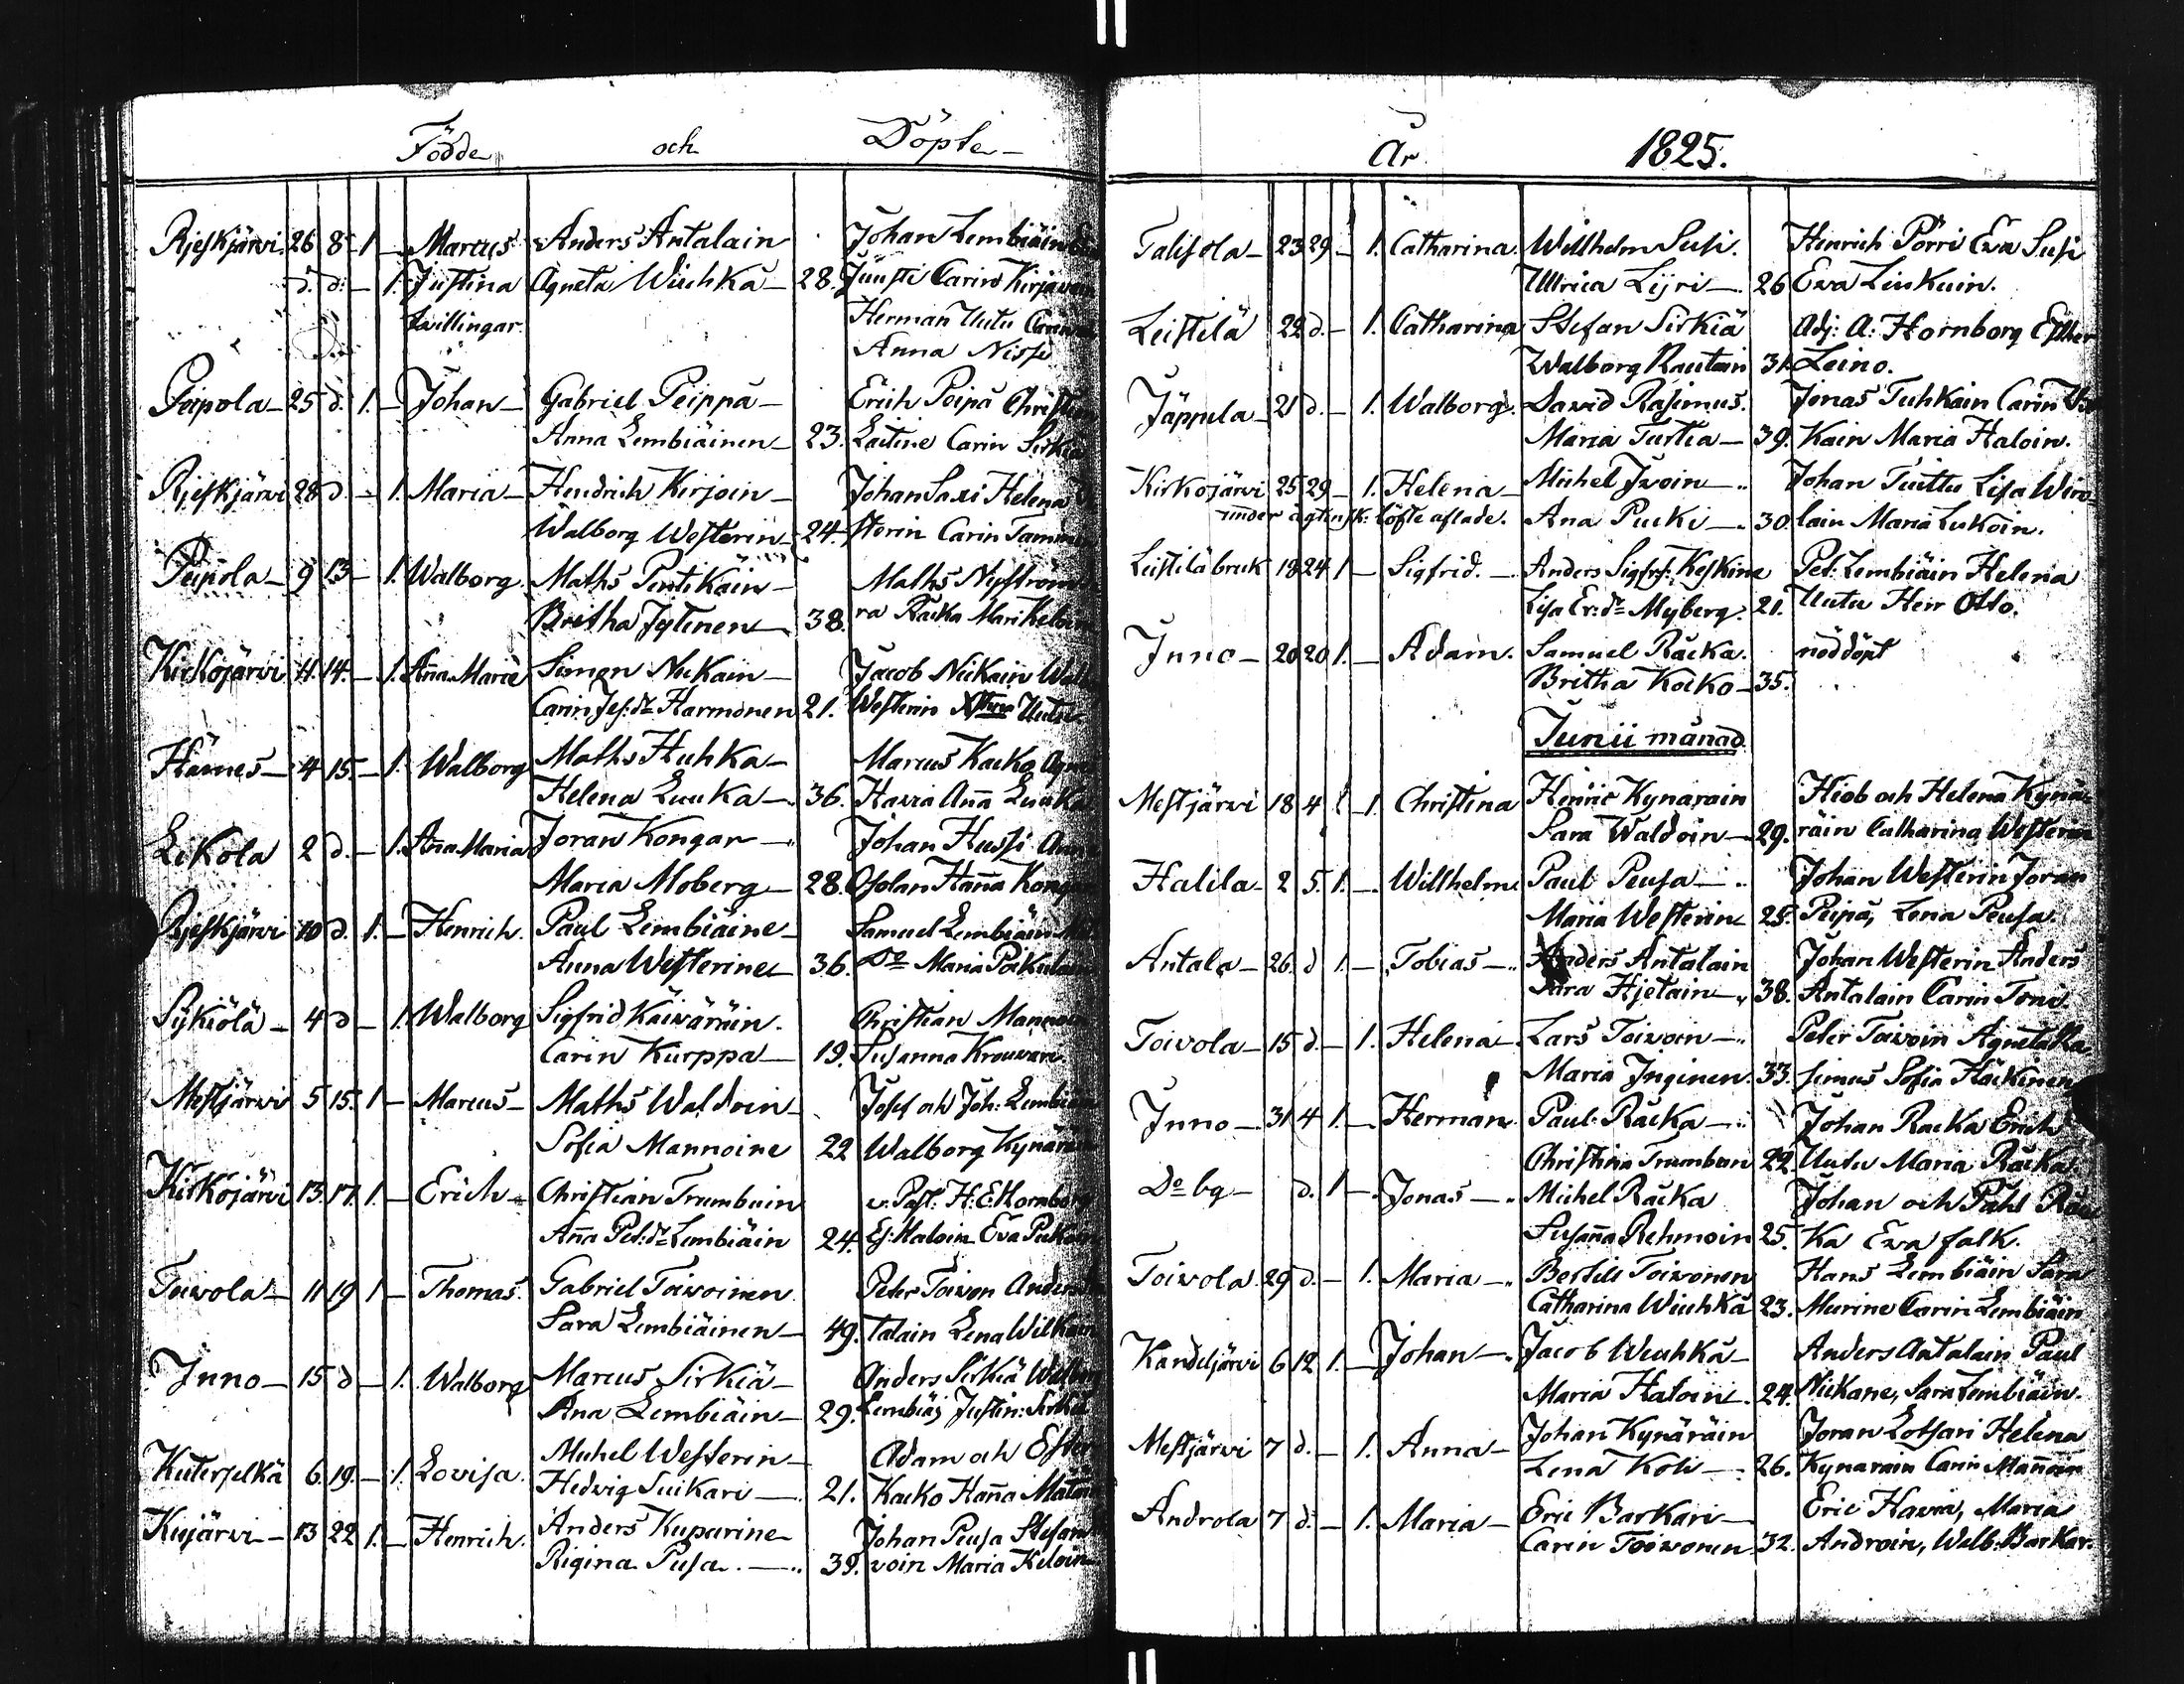 Födde och Döpte
Rjeskjärvi 26 8 1 — Marcus Anders Antalain Johan Lembiäin
d. d. — 1. Justina Agneta Wiuhkä — 28. Juusti Carin Kirjavain
tvillingar. Herman Uutu
Anna Nisse
Peipola — 25 d. 1. — Johan — Gabriel Peippä — Erich Peipä
Anna Lembiäinen — 23. Laitine Carin Sirkiä
Rjeskjärvi 28 d. — 1. Maria — Hendrich Kirjoin — Johan Saxi Helena
Walborg Westerin — 24. sterin Carin
Peipola — 9 13 — 1. Walborg. Maths Pentikäin — Maths
Britha Jytinen — 38. ra Räcka
Kirkojärvi 11. 14. — 1. Anna Maria Simon Nukain — Jacob Nikain
Carin Jos:dr Harmonen 21. Westerin Uutu
Hämes — 4 15 — 1. Walborg Maths Huhka — Marcus Kacko
Helena Luuka — 36. Hawia Anna Luuka
Likola 2 d. — 1. Anna Maria Joran Kongar — Johan Hussi
Maria Moberg — 28. Hanna
Rjeskjärvi 10 d. 1. — Henrich. Paul Lembiäine — Samuel Lembiäin
Anna Westerine — 36. Do Maria
Sykiölä — 4 d — 1. Walborg Sigfrid Käiväräin. Christian
Carin Kurppa — 19. Susanna
Mestjärvi 5 15. 1 — Marcus — Maths Waldoin — Josef och Joh: Lembiäin
Sofia Mannoine 22 Walborg
Kirkojärvi 13. 17. 1. — Erich — Christian Trumbuin v. Past: H: E: Hornborg
Anna Pet:dr Lembiäin 24. Haloin Eva
Toivola — 11 19 1 — Thomas. Gabriel Toivoinen Peter Toivon Anders
Sara Lembiäinen — 49. talain Lena
Inno — 15 d — 1. Walborg Marcus Sirkiä — Anders Sirkiä
Ana Lembiäin — 29. Justin: Sirkiä
Kuterselkä 6. 19. — 1. Lovisa. Michel Westerin — Adam och Ester
Hedvig Suikari — 21. Kacko Hanna
Kujärvi — 13 22 1. — Henrich. Anders Kuparine Johan Peusa Stefan
Rigina Pusa — 39. voin Maria
År 1825.
Talisola — 23 29 — 1. Catharina. Willhelm Susi. Henrich Pörri Eva Susi
Ullrica Lijri — 26 Eva Linkuin.
Leistilä 22 d. — 1. Catharina Stefan Sirkiä Adj: A: Hornborg Esther
Walborg Rautain 31. Leino.
Jäppila — 21 d. — 1. Walborg. David Rasimus. Jonas Tuhkain Carin
Maria Turtia — 39. kain Maria Haloin.
Kirkojärvi 25 29 — 1. Helena — Michel Ivoin — Johan Tuittu Lisa Wiro
under ägtensk: löfte aflade. Ana Pucki — 30. lain Maria Lukoin.
Leistilä bruk 18 24 1 — Sigfrid. — Anders Sigfrs: Keskine Pet: Lembiäin Helena
Lisa Er:dr Myberg. 21. Uutu Herr Otto.
Inno — 20 20 1. — Adam. Samuel Räcka. nöddöpt
Britha Kocko — 35.
Junii månad.
Mestjärvi 18 4 — 1. Christina Henric Kynaroin Hiob och Helena Kynä
Sara Waldoin — 29. räin Catharina Westerin
Halila — 2 5. 1. — Willhelm Paul Peusa — Johan Westerin Joran
Maria Westerin 25. Peipä, Lena Peusa.
Antala — 26. d 1. — Tobias — Anders Antalain Johan Westerin Anders
Sara Hjetain — 38. Antalain Carin Toni
Toivola — 15 d. — 1. Helena — Lars Toivoin — Peter Toivoin Agneta Ra
Maria Inginen. 33. simus Sofia Häckinen
Inno — 31 4 1. — Herman. Paul Räcka — Johan Racka Erich
Christina Trumbuin 22 Uutu Maria Räcka.
Do bg — d. 1 — Jonas — Michel Räcka Johan och Påhl Räc
Susanna Rehmoin 25. ka Eva falk.
Toivola. 29 d. — 1. Maria — Bertils Toivonen Hans Lembiäin Sara
Catharina Wiuhkä 23. Murine Carin Lembiäin
Kandeljärvi 6 12 1. — Johan — Jacob Wiuhkä — Anders Antalain Paul
Maria Haloin. 24. Nickane, Sara Lembiäin.
Mestjärvi 7 d. — 1. Anna — Johan Kynäräin Joran Lotsari Helena
Lena Koli — 26. Kynarain Carin Mannoin
Androla 7 d. — 1. Maria — Eric Barkari — Eric Havia, Maria
Carin Toivonen 32. Androin, Walb: Barkar.